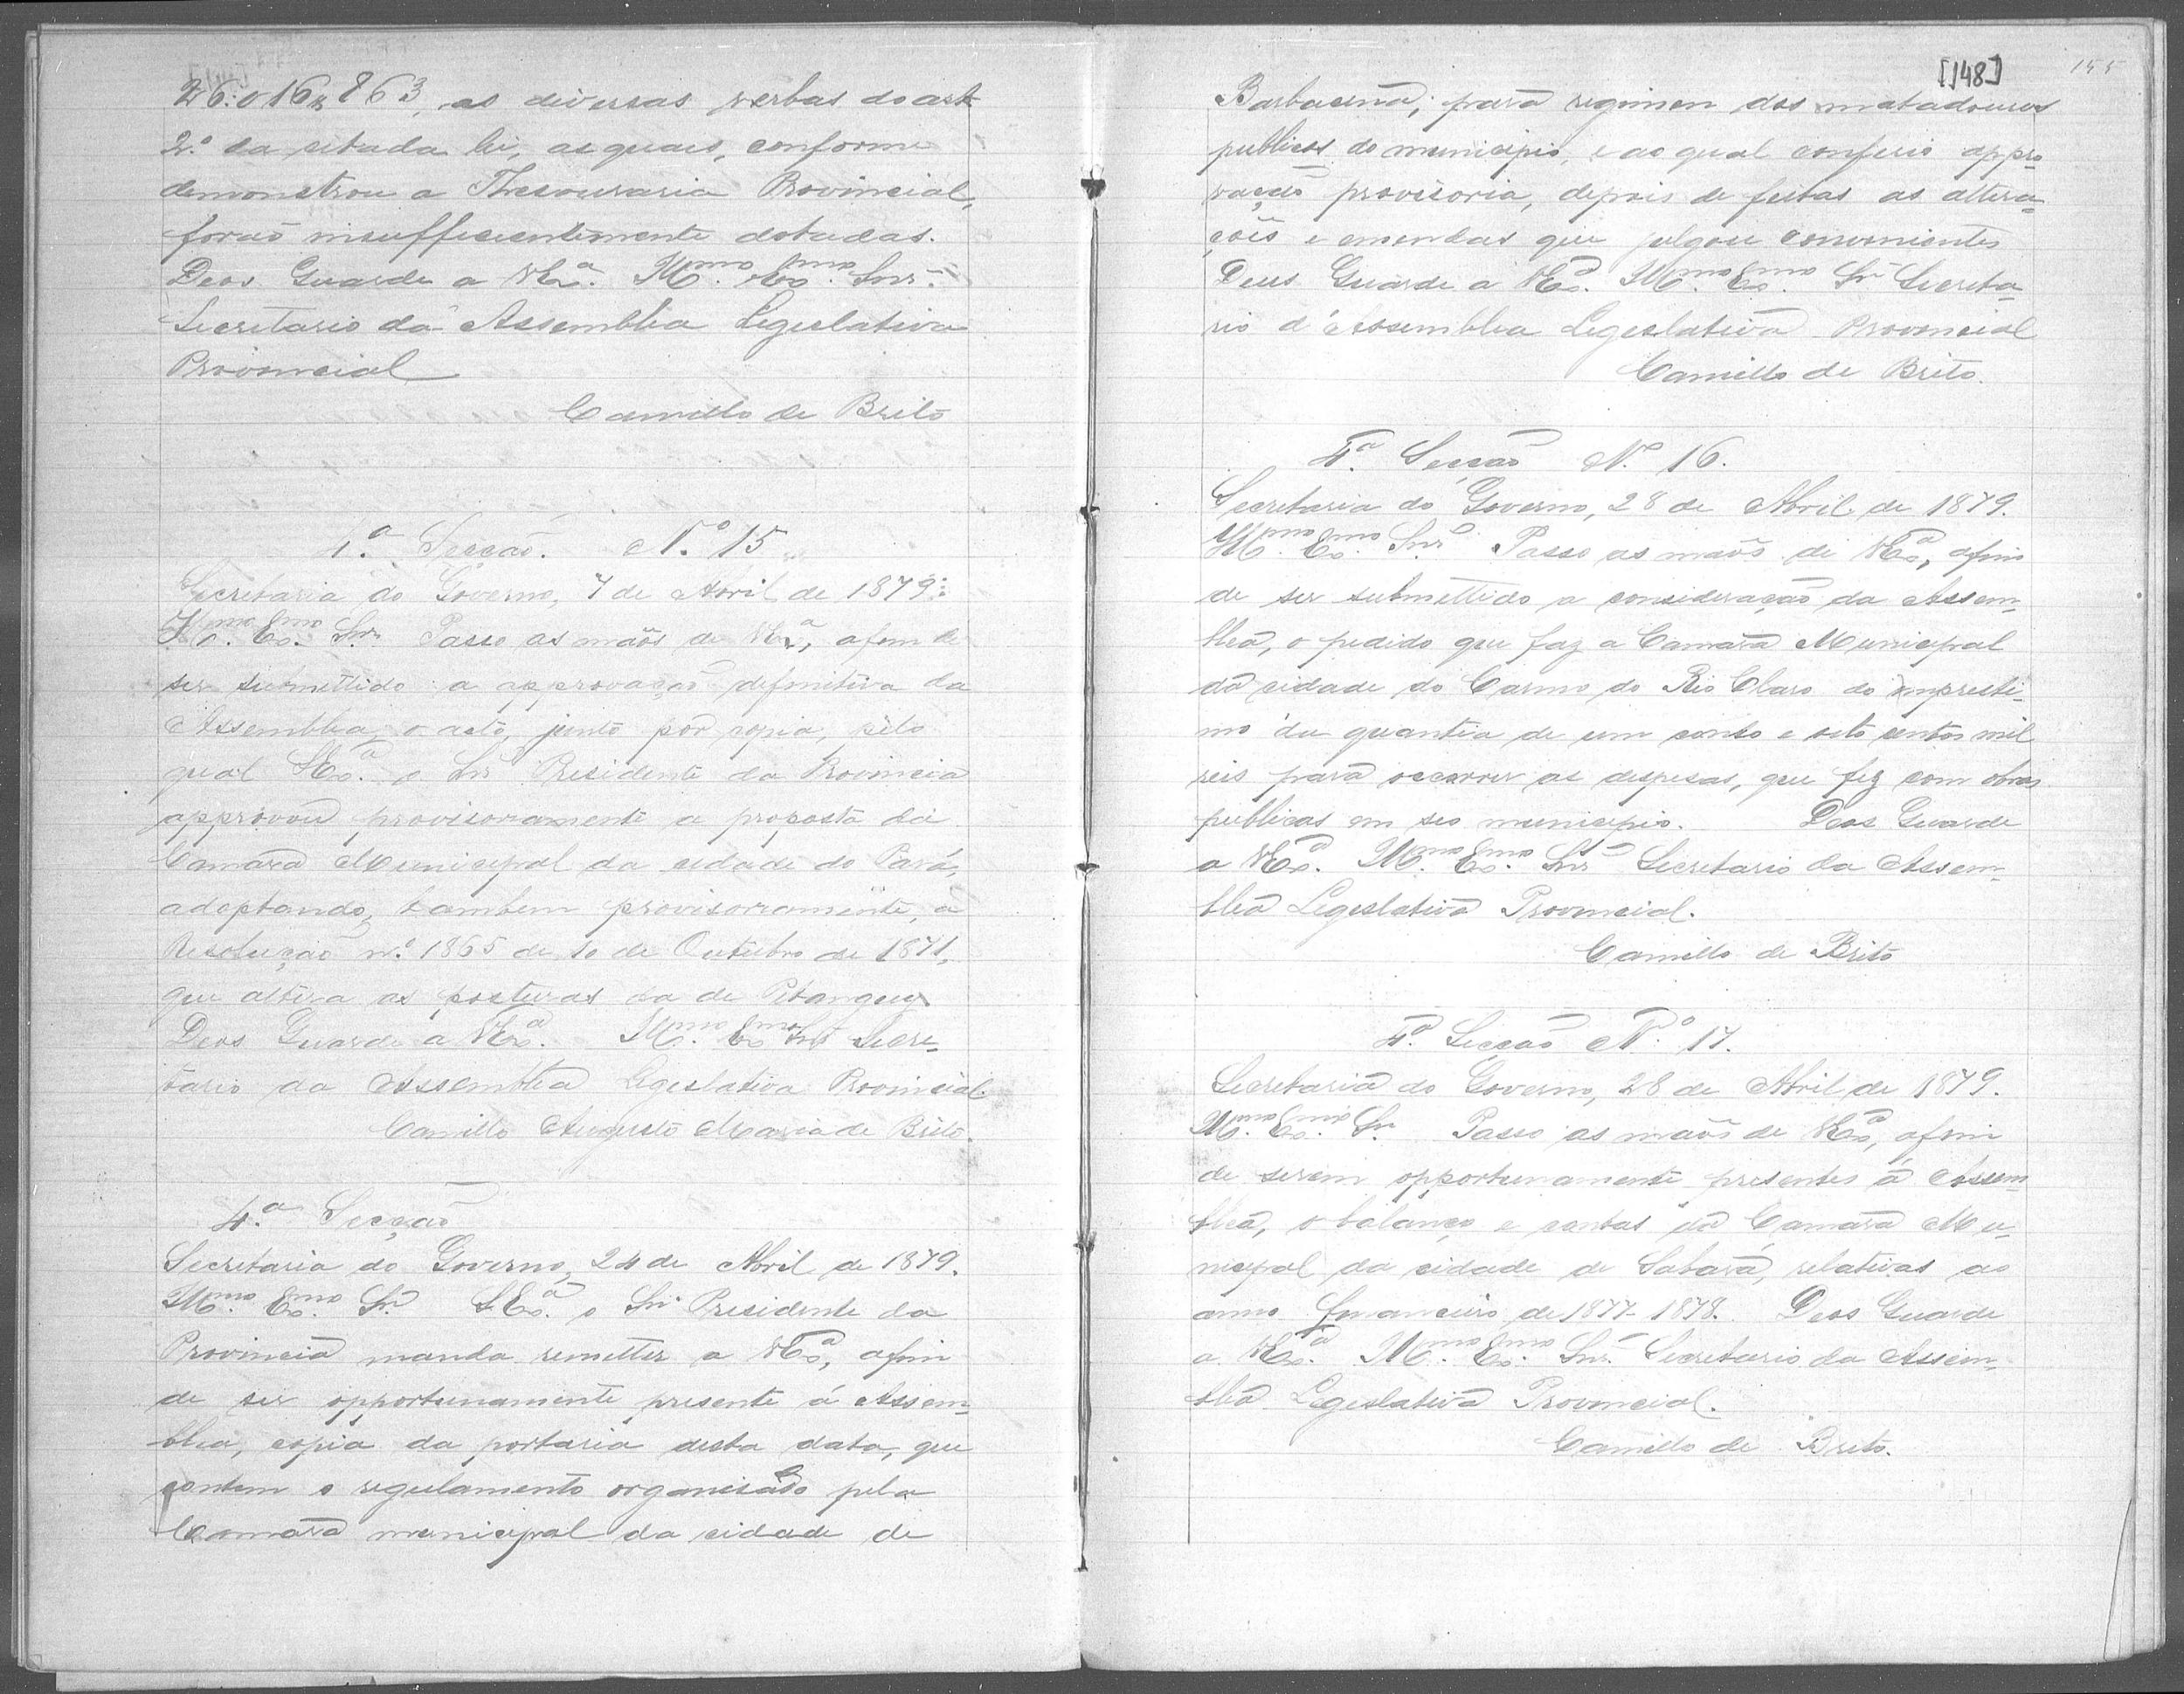 26:016$863, as diversas verbas do art
2.º da citada lei, as quaes, conforme
demonstrou a Thesouraria Provincial,
forão insufficientemente dotadas.
Deos Guarde a V.Ex.ª Ill.mo Ex.mo Snr.
Secretario da Assemblea Legislativa
Provincial
Camillo de Brito
4.ª Secção. N.º 15
Secretaria do Governo, 7 de Abril de 1879.
Ill.mo Ex.mo Snr. Passo as mãos de V.Ex.ª, afim de
ser submettido a approvação definitiva da
Assemblea, o acto, junto por copia, pelo
qual S.Ex.ª o Snr Presidente da Provincia
approvou provisoriamente a proposta da
Camara Municipal da cidade do Pará,
adoptando, tambem provisoriamente, a
Resolução n.º 1865 de 10 de Outubro de 1871,
que altera as posturas da de Pitanguy.
Deos Guarde a V.Ex.ª Ill.mo Ex.mo Snr Secre-
tario da Assemblea Legislativa Provincial.
Camillo Augusto Maria de Brito.
4.ª Secção
Secretaria do Governo, 24 de Abril de 1879.
Ill.mo Ex.mo Sr. S.Ex.ª o Snr Presidente da
Provincia manda remetter a V.Ex.ª, afim
de ser opportunamente presente á Assem-
blea, copia da portaria desta data, que
contem o regulamento organisado pela
Camara municipal da cidade de
[148] 155
Barbacena, para regimen dos matadouros
publicos do municipio, e ao qual conferio appro-
vação provisoria, depois de feitas as altera-
ções e emendas que julgou convenientes
Deus Guarde a V.Ex.ª Ill.mo Ex.mo Sr. Secreta-
rio d'Assemblea Legislativa Provincial
Camillo de Brito.
4.ª Secção N.º 16.
Secretaria do Governo, 28 de Abril de 1879.
Ill.mo Ex.mo Snr. Passo as mãos de V.Ex.ª, afim
de ser submettido a consideração da Assem-
blea, o pedido que faz a Camara Municipal
da cidade do Carmo do Rio Claro do empresti-
mo da quantia de um conto e oito centos mil
reis para occorrer as despesas, que fez com obras
publicas em seo municipio. Deos Guarde
a V.Ex.ª Ill.mo Ex.mo Snr Secretario da Assem-
blea Legislativa Provincial.
Camillo de Brito
4.ª Secção N.º 17.
Secretaria do Governo, 28 de Abril de 1879.
Ill.mo Ex.mo Sr. Passo as mãos de V.Ex.ª, afim
de serem opportunamente presentes á Assem-
blea, o balanço e contas da Camara Mu-
nicipal da cidade de Sabará, relativas ao
anno financeiro de 1877-1878. Deos Guarde
a V.Ex.ª Ill.mo Ex.mo Snr. Secretario da Assem-
blea Legislativa Provincial.
Camillo de Brito.